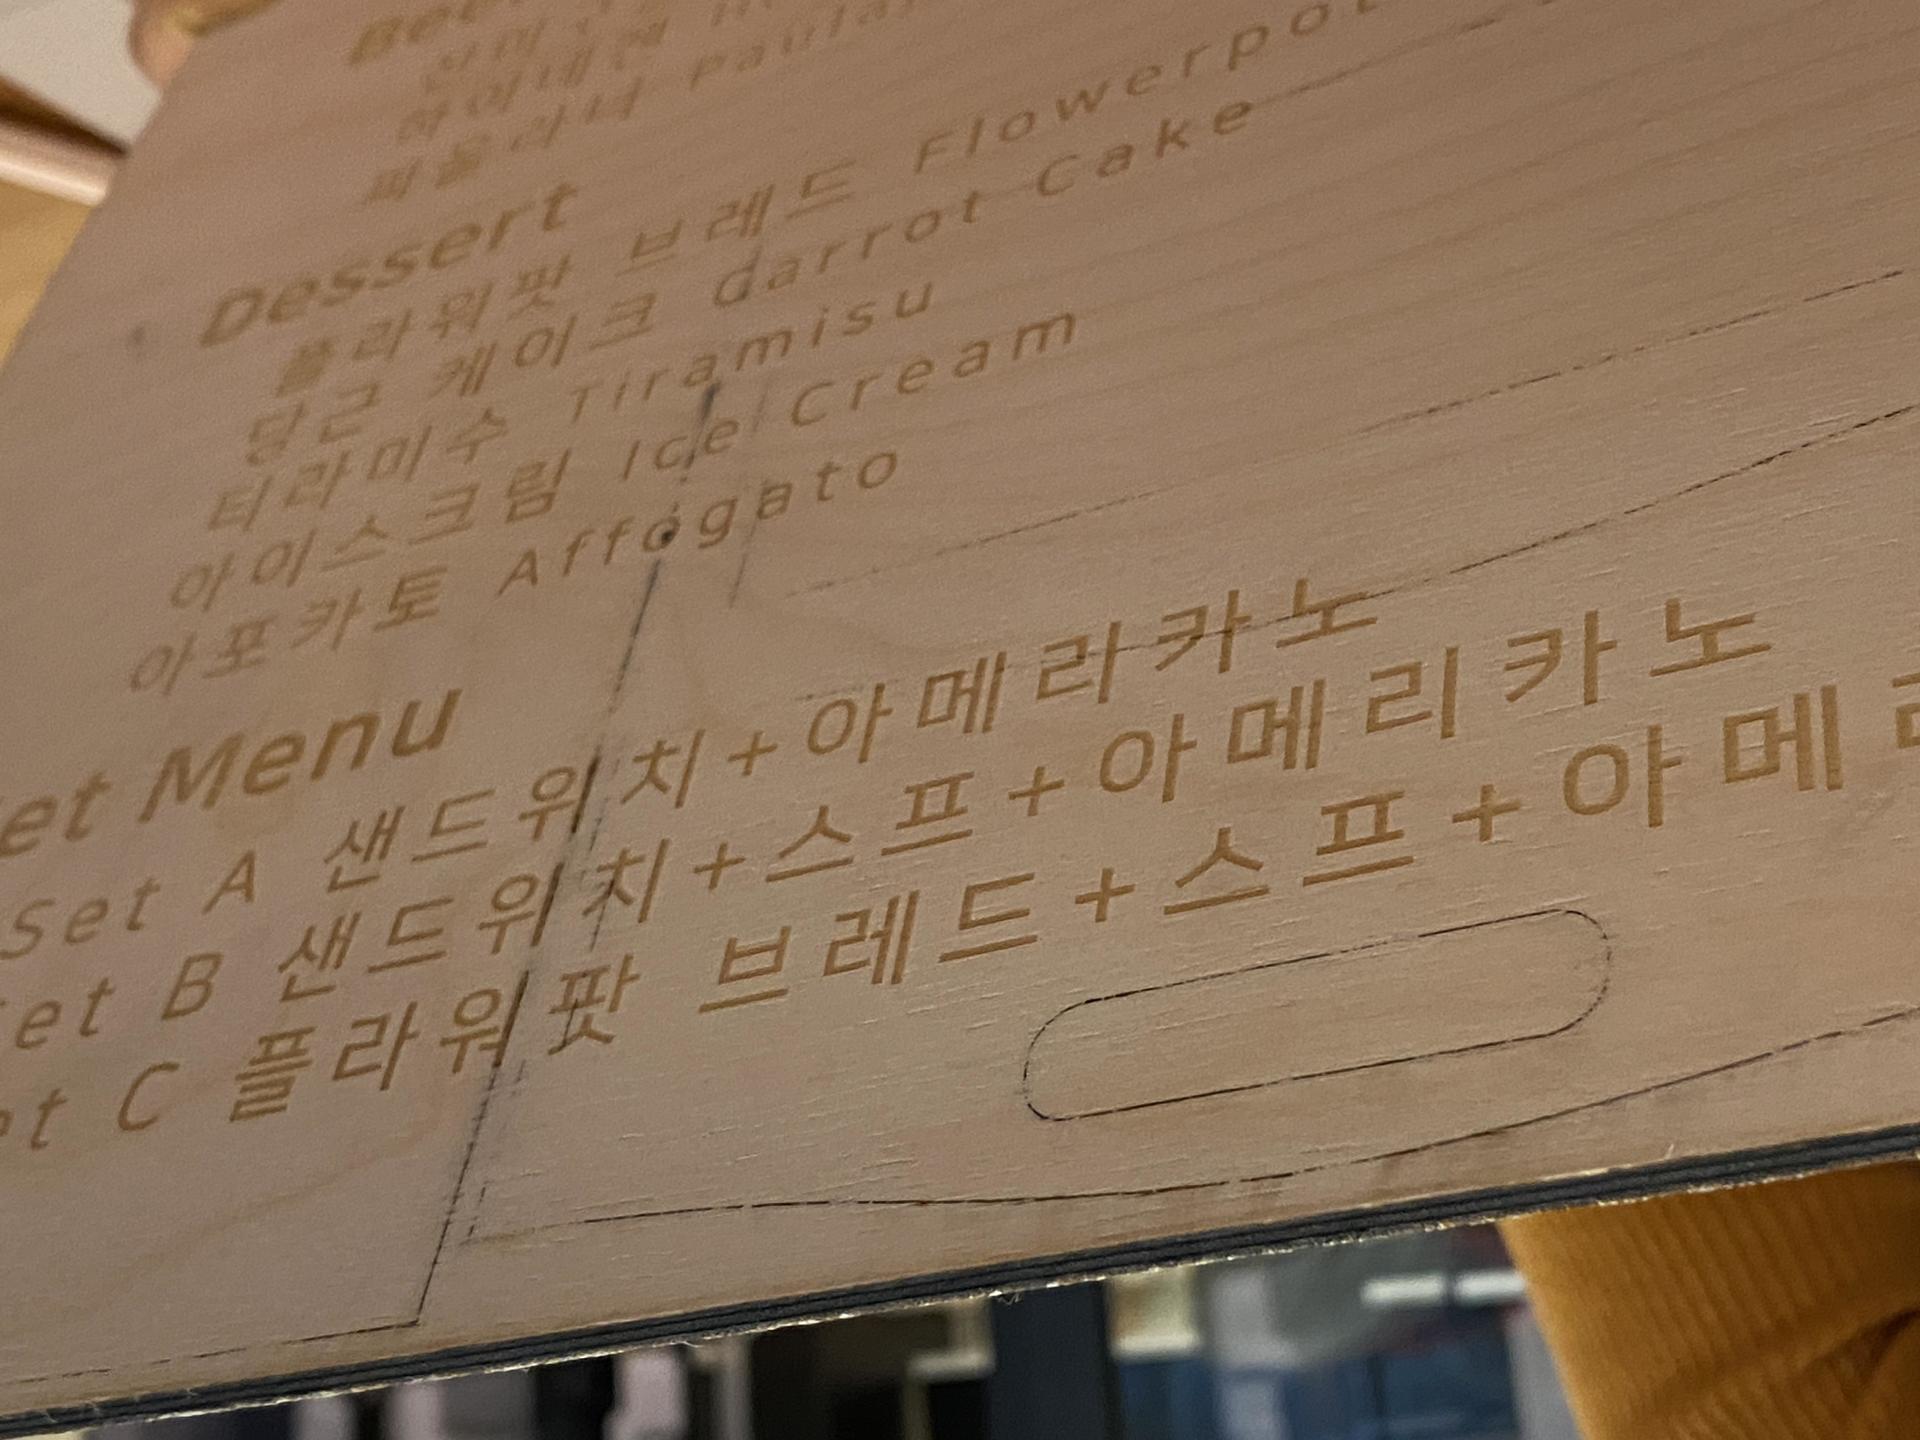 하이네켄
파울라너
Dessert
플라워팟 브레드 Flowerpot
당근 케이크 Carrot Cake
티라미수 Tiramisu
아이스크림 Ice Cream
아포카토 Affogato
et Menu
Set A 샌드위치+아메라카노
et B 샌드위치+스프+아메리카노
et C 플라워팟 브레드+스프+아메